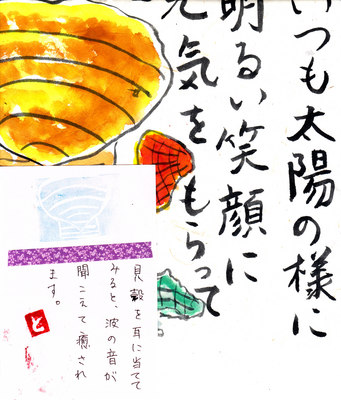 いつも太陽の様に
明るい笑顔に
元気をもらって
る
貝殻を耳に当てて
みると、波の音が
聞こえて癒され
ます。
と